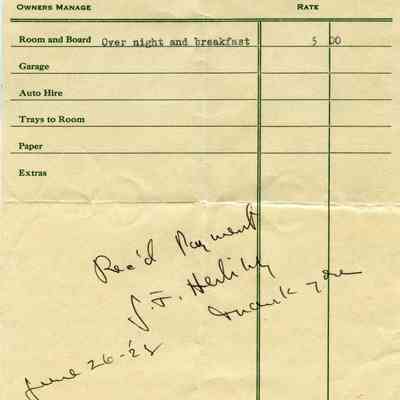 OWNERS MANAGE RATE
Room and Board Over night and breakfast 5 00
Garage
Auto Hire
Trays to Room
Paper
Extras
Rec'd Payment
Thank you
June 26 -